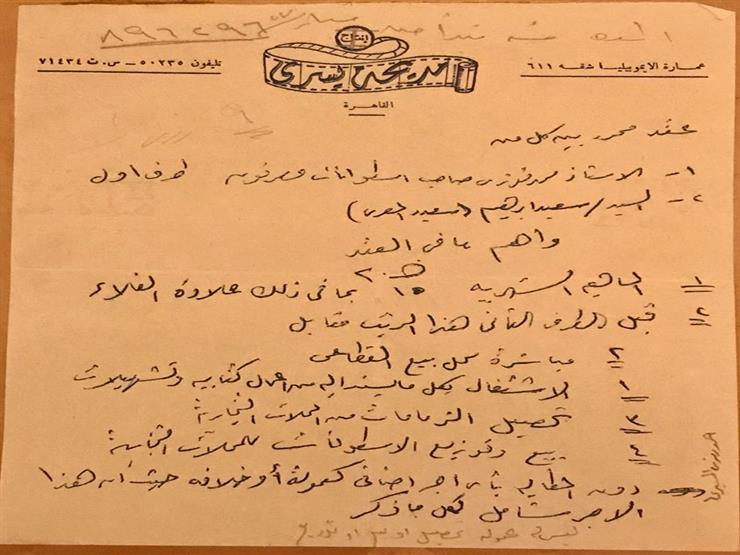 ٨٩٦٢٩٦
انتاج
مديحة يسرى
القاهرة
عمارة الايموبيليا شقه ٦١١
تليفون ٥٠٢٣٥ – س.ت ٧١٤٣٤
عقد محرر بين كل من
١- الاستاذ محمد فوزى صاحب اسطوانات مصرفون طرف اول
٢- السيد / سعيد ابراهيم (سعيد المصرى)
واهم ما فى العقد
١ الماهيه الشهريه ١٥ بما فى ذلك علاوة الغلاء
٢ قبل الطرف الثانى هذا المرتب مقابل
٢ مباشرة محل بيع القطاعى
١ الاشتغال بكل ما يسند اليه من اعمال كتابيه وتشهيلات
٣ تحصيل الكمبيالات من المحلات التجارية
٤ بيع وتوزيع الاسطوانات للمحلات التجارية
دون المطالبه بأى اجر اضافى كعمولة أو خلافه حيث أن هذا
الاجر شامل لكل ما ذكر
ليس له عمولة تحصيل او بيع او توزيع